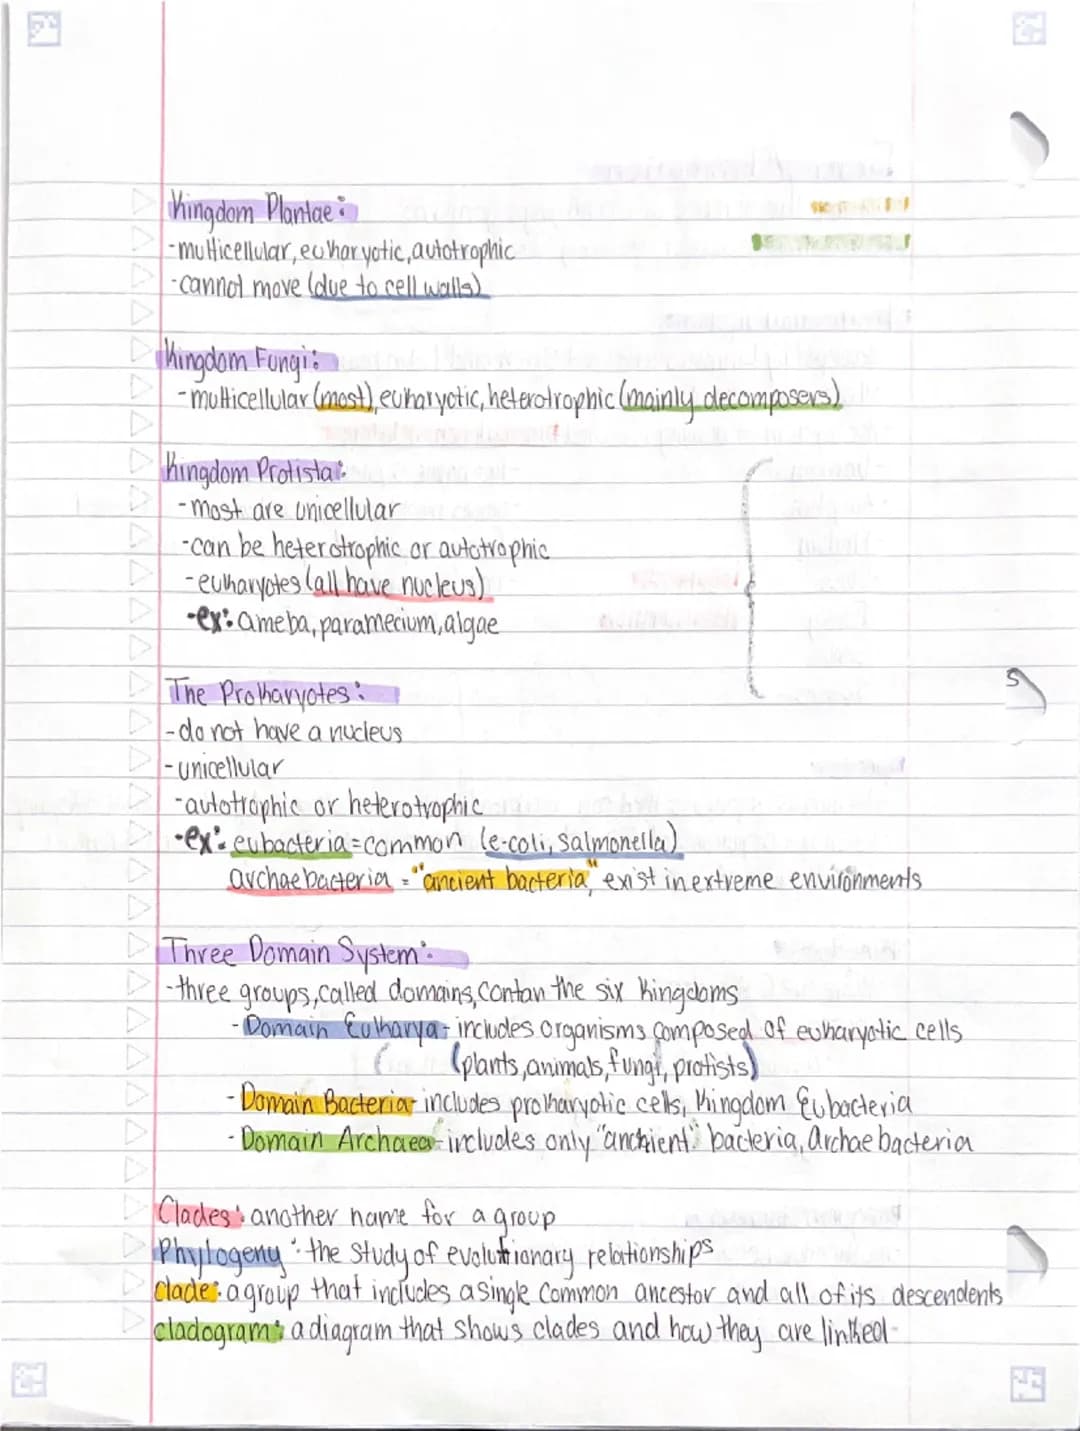 Kingdom Plantae:
-multicellular, eukaryotic, autotrophic
-cannot move (due to cell walls)
Kingdom Fungi:
-multicellular (most), eukaryotic, heterotrophic (mainly decomposers)
Kingdom Protista:
-most are unicellular
-can be heterotrophic or autotrophic
-eukaryotes (all have nucleus)
-ex: ameba, paramecium, algae
The Prokaryotes:
-do not have a nucleus
-unicellular
-autotrophic or heterotrophic
-ex: eubacteria=common (e-coli, salmonella)
archaebacteria = "ancient bacteria", exist in extreme environments
Three Domain System:
-three groups, called domains, contan the six kingdoms
-Domain Eukarya- includes organisms composed of eukaryotic cells
(plants, animals, fungi, protists)
-Domain Bacteria- includes prokaryotic cells, Kingdom Eubacteria
-Domain Archaea- includes only "anchient" bacteria, Archaebacteria
Clades: another name for a group
Phylogeny: the study of evolutionary relationships
Clade: a group that includes a single common ancestor and all of its descendents
cladogram: a diagram that shows clades and how they are linked